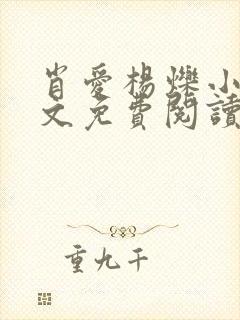 肖愛楊爍小
文免費閱讀
重九千